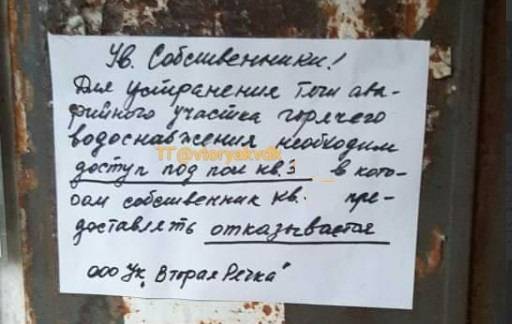 Ув. Собственники!
Для устранения течи ава-
рийного участка горячего
водоснабжения необходим
TT@vtoryakvdk
доступ под пол кв. 3 в кото-
ром собственник кв. пре-
доставлять отказывается
ООО УК „Вторая Речка"